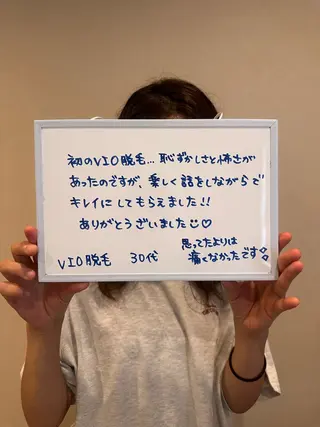 初のVIO脱毛... 恥ずかしさと怖さが
あったのですが、楽しく話をしながらで
キレイにしてもらえました!!
ありがとうございました☺♡
VIO脱毛 30代
思ってたよりは
痛くなかったです